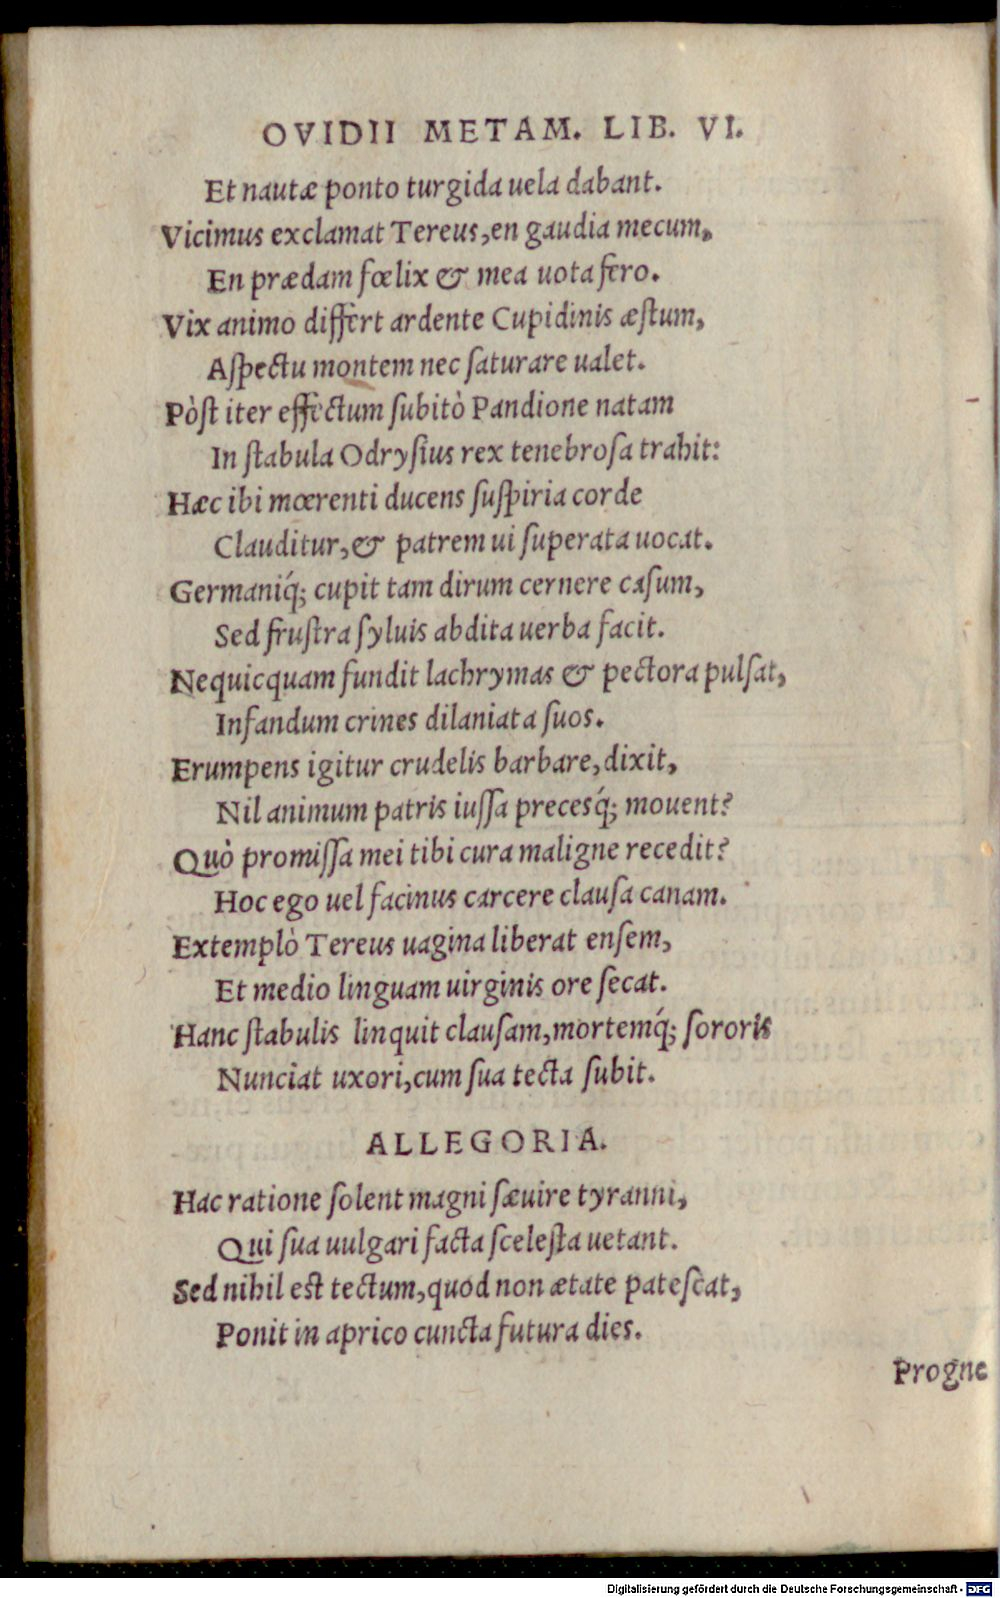 OVIDII METAM. LIB. VI.
Et nautæ ponto turgida uela dabant.
Vicimus exclamat Tereus, en gaudia mecum,
En prædam fœlix & mea uota fero.
Vix animo differt ardente Cupidinis æstum,
Aspectu montem nec saturare ualet.
Pòst iter effectum subitò Pandione natam
In stabula Odrysius rex tenebrosa trahit:
Hæc ibi mœrenti ducens suspiria corde
Clauditur, & patrem ui superata uocat.
Germaniq́; cupit tam dirum cernere casum,
Sed frustra syluis abdita uerba facit.
Nequicquam fundit lachrymas & pectora pulsat,
Infandum crines dilaniata suos.
Erumpens igitur crudelis barbare, dixit,
Nil animum patris iussa precesq́; mouent?
Quò promissa mei tibi cura maligne recedit?
Hoc ego uel facinus carcere clausa canam.
Extemplò Tereus uagina liberat ensem,
Et medio linguam uirginis ore secat.
Hanc stabulis linquit clausam, mortemq́; sororis
Nunciat uxori, cum sua tecta subit.
ALLEGORIA.
Hac ratione solent magni sæuire tyranni,
Qui sua uulgari facta scelesta uetant.
Sed nihil est tectum, quod non ætate patescat,
Ponit in aprico cuncta futura dies.
Progne
Digitalisierung gefördert durch die Deutsche Forschungsgemeinschaft - DFG